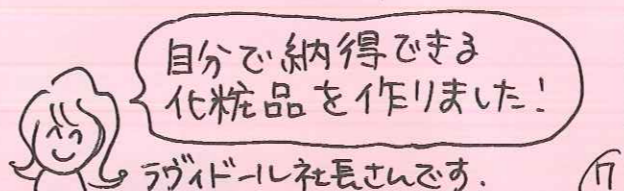 自分で納得できる
化粧品を作りました!
ラヴィドール社長さんです.